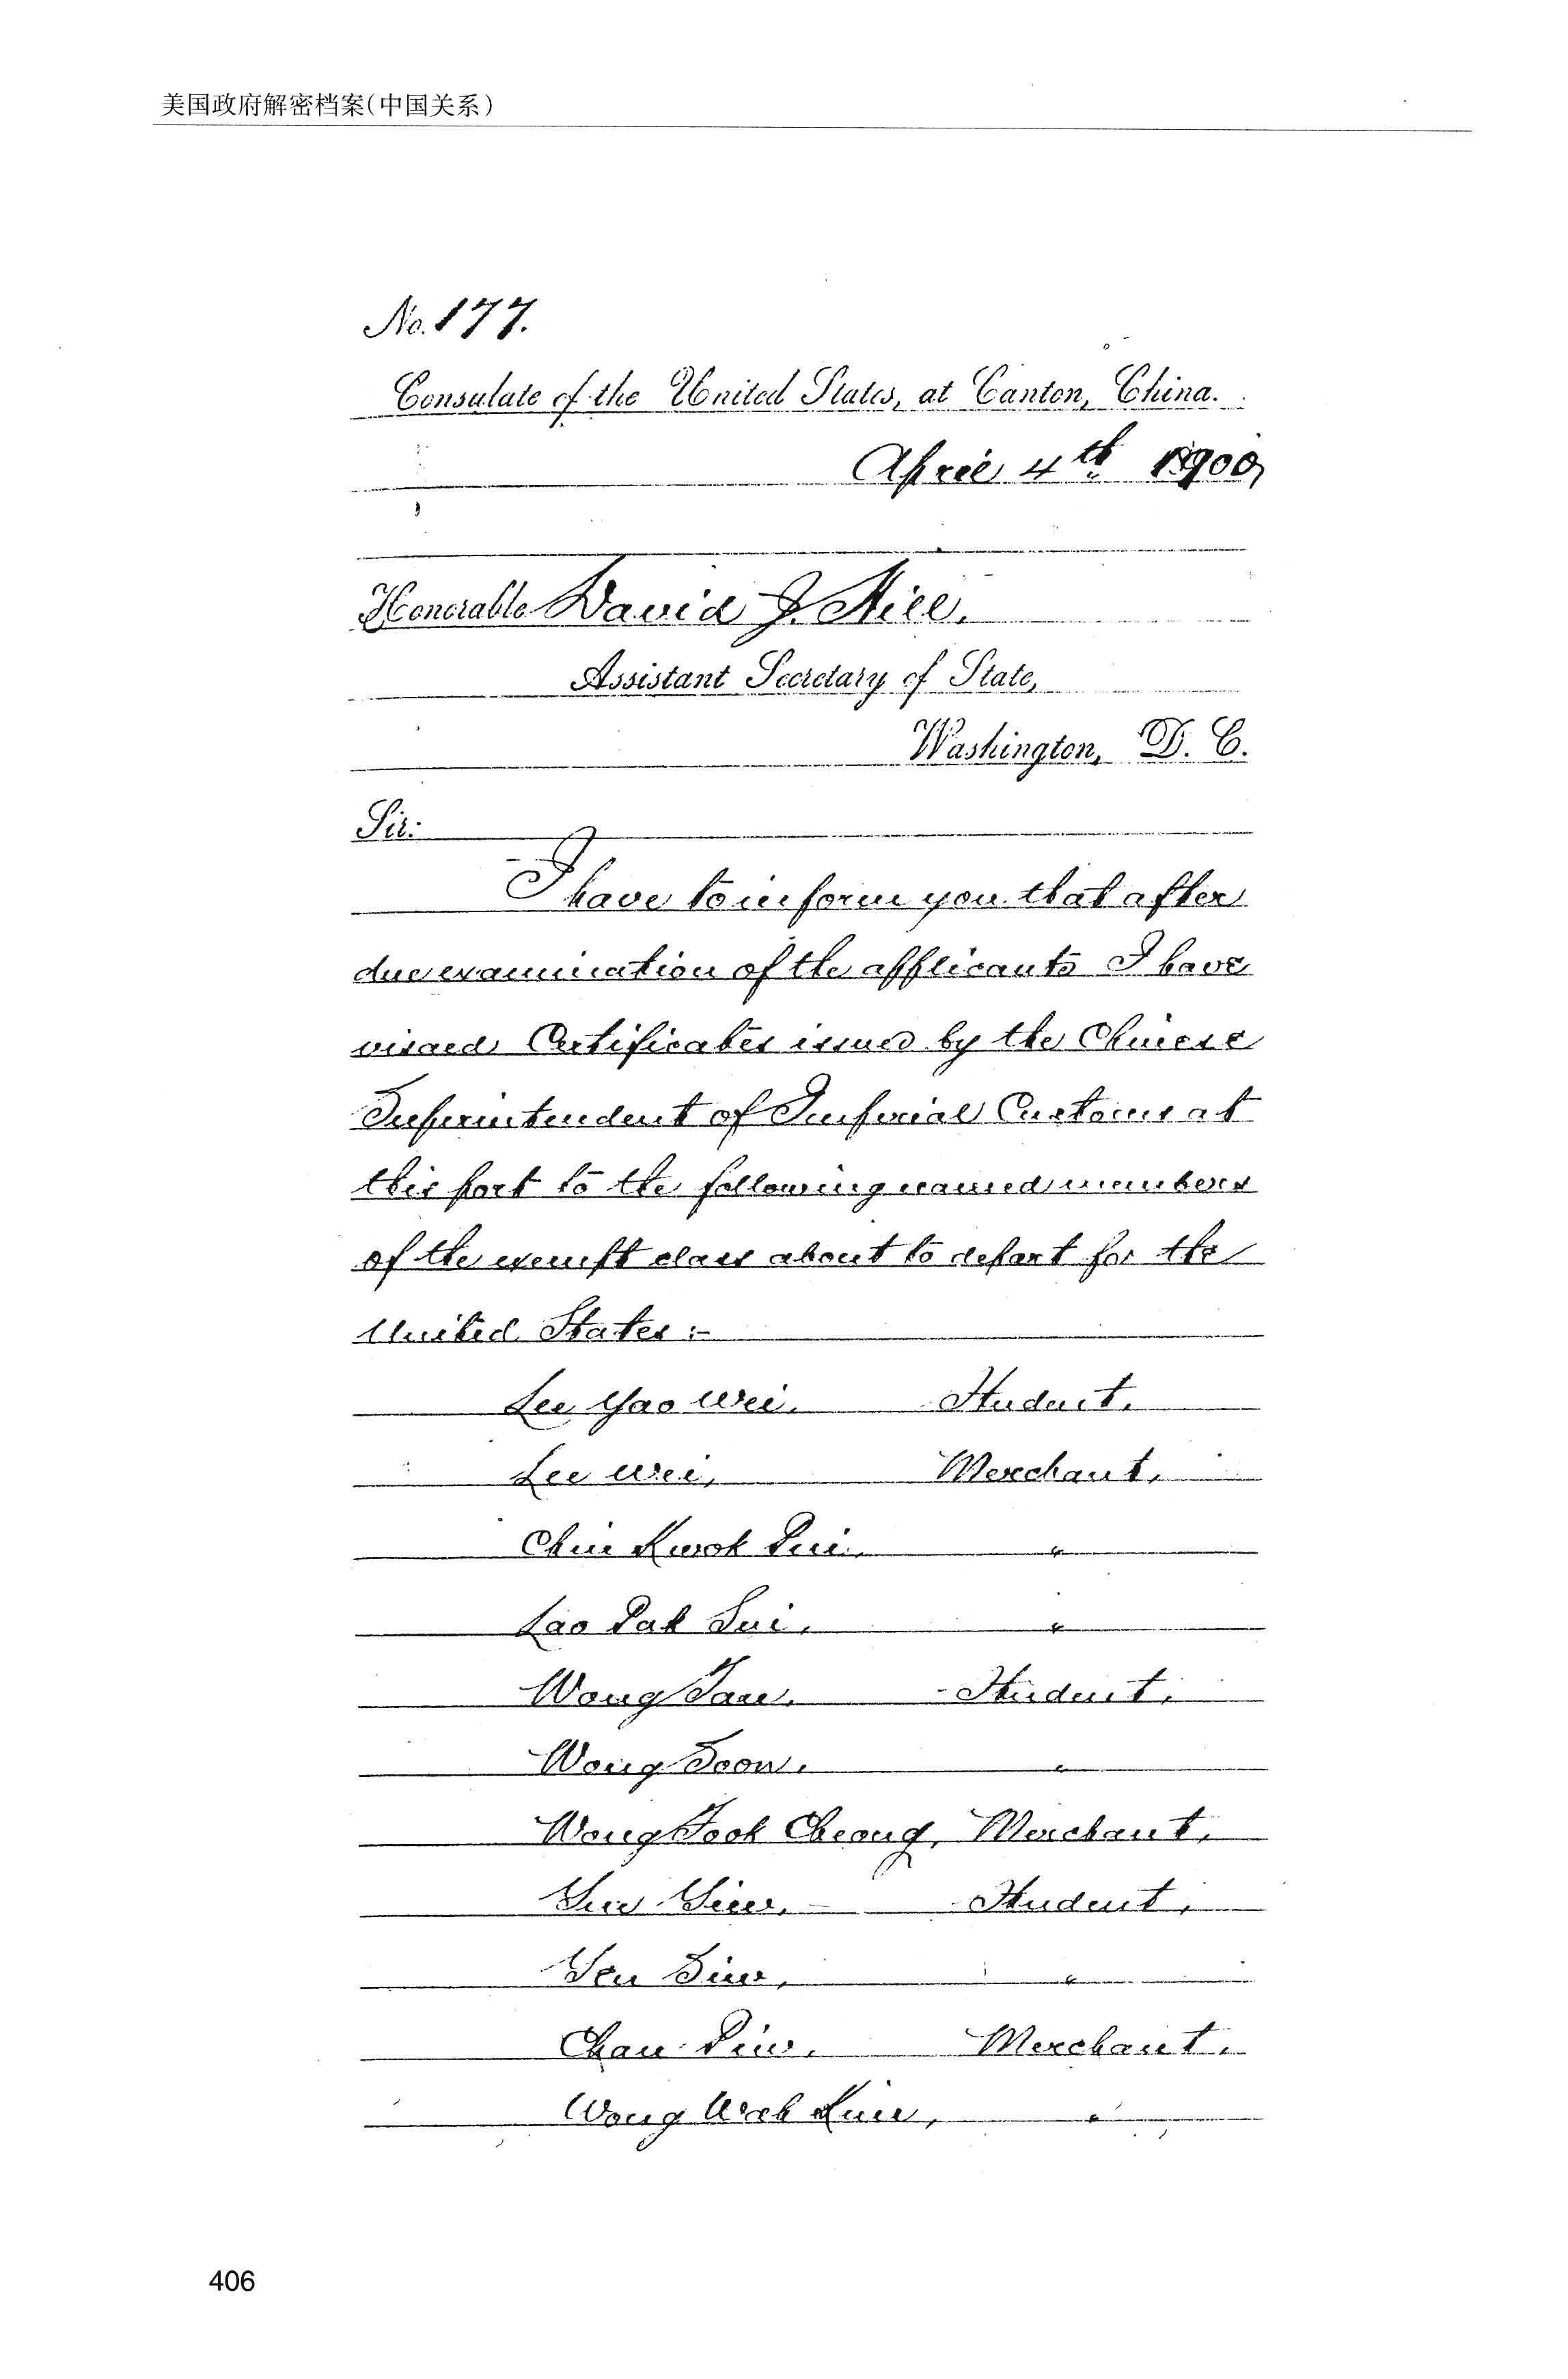 美国政府解密档案(中国关系)
No. 177.
Consulate of the United States, at Canton, China.
April 4th 1900,
Honorable David J. Hill,
Assistant Secretary of State,
Washington, D. C.
Sir:
I have to inform you that after
due examination of the applicants I have
visaed Certificates issued by the Chinese
Superintendent of Imperial Customs at
this port to the following named members
of the exempt class about to depart for the
United States :-
Lee Yao Wei, Student,
Lee Wei, Merchant,
Chin Kwok Pui, "
Lao Pak Sui, "
Wong Student,
Wong Soon, "
Wong Fook Cheong, Merchant,
Student,
Yeu Siw, "
Chan Piw, Merchant,
Wong Wah "
406